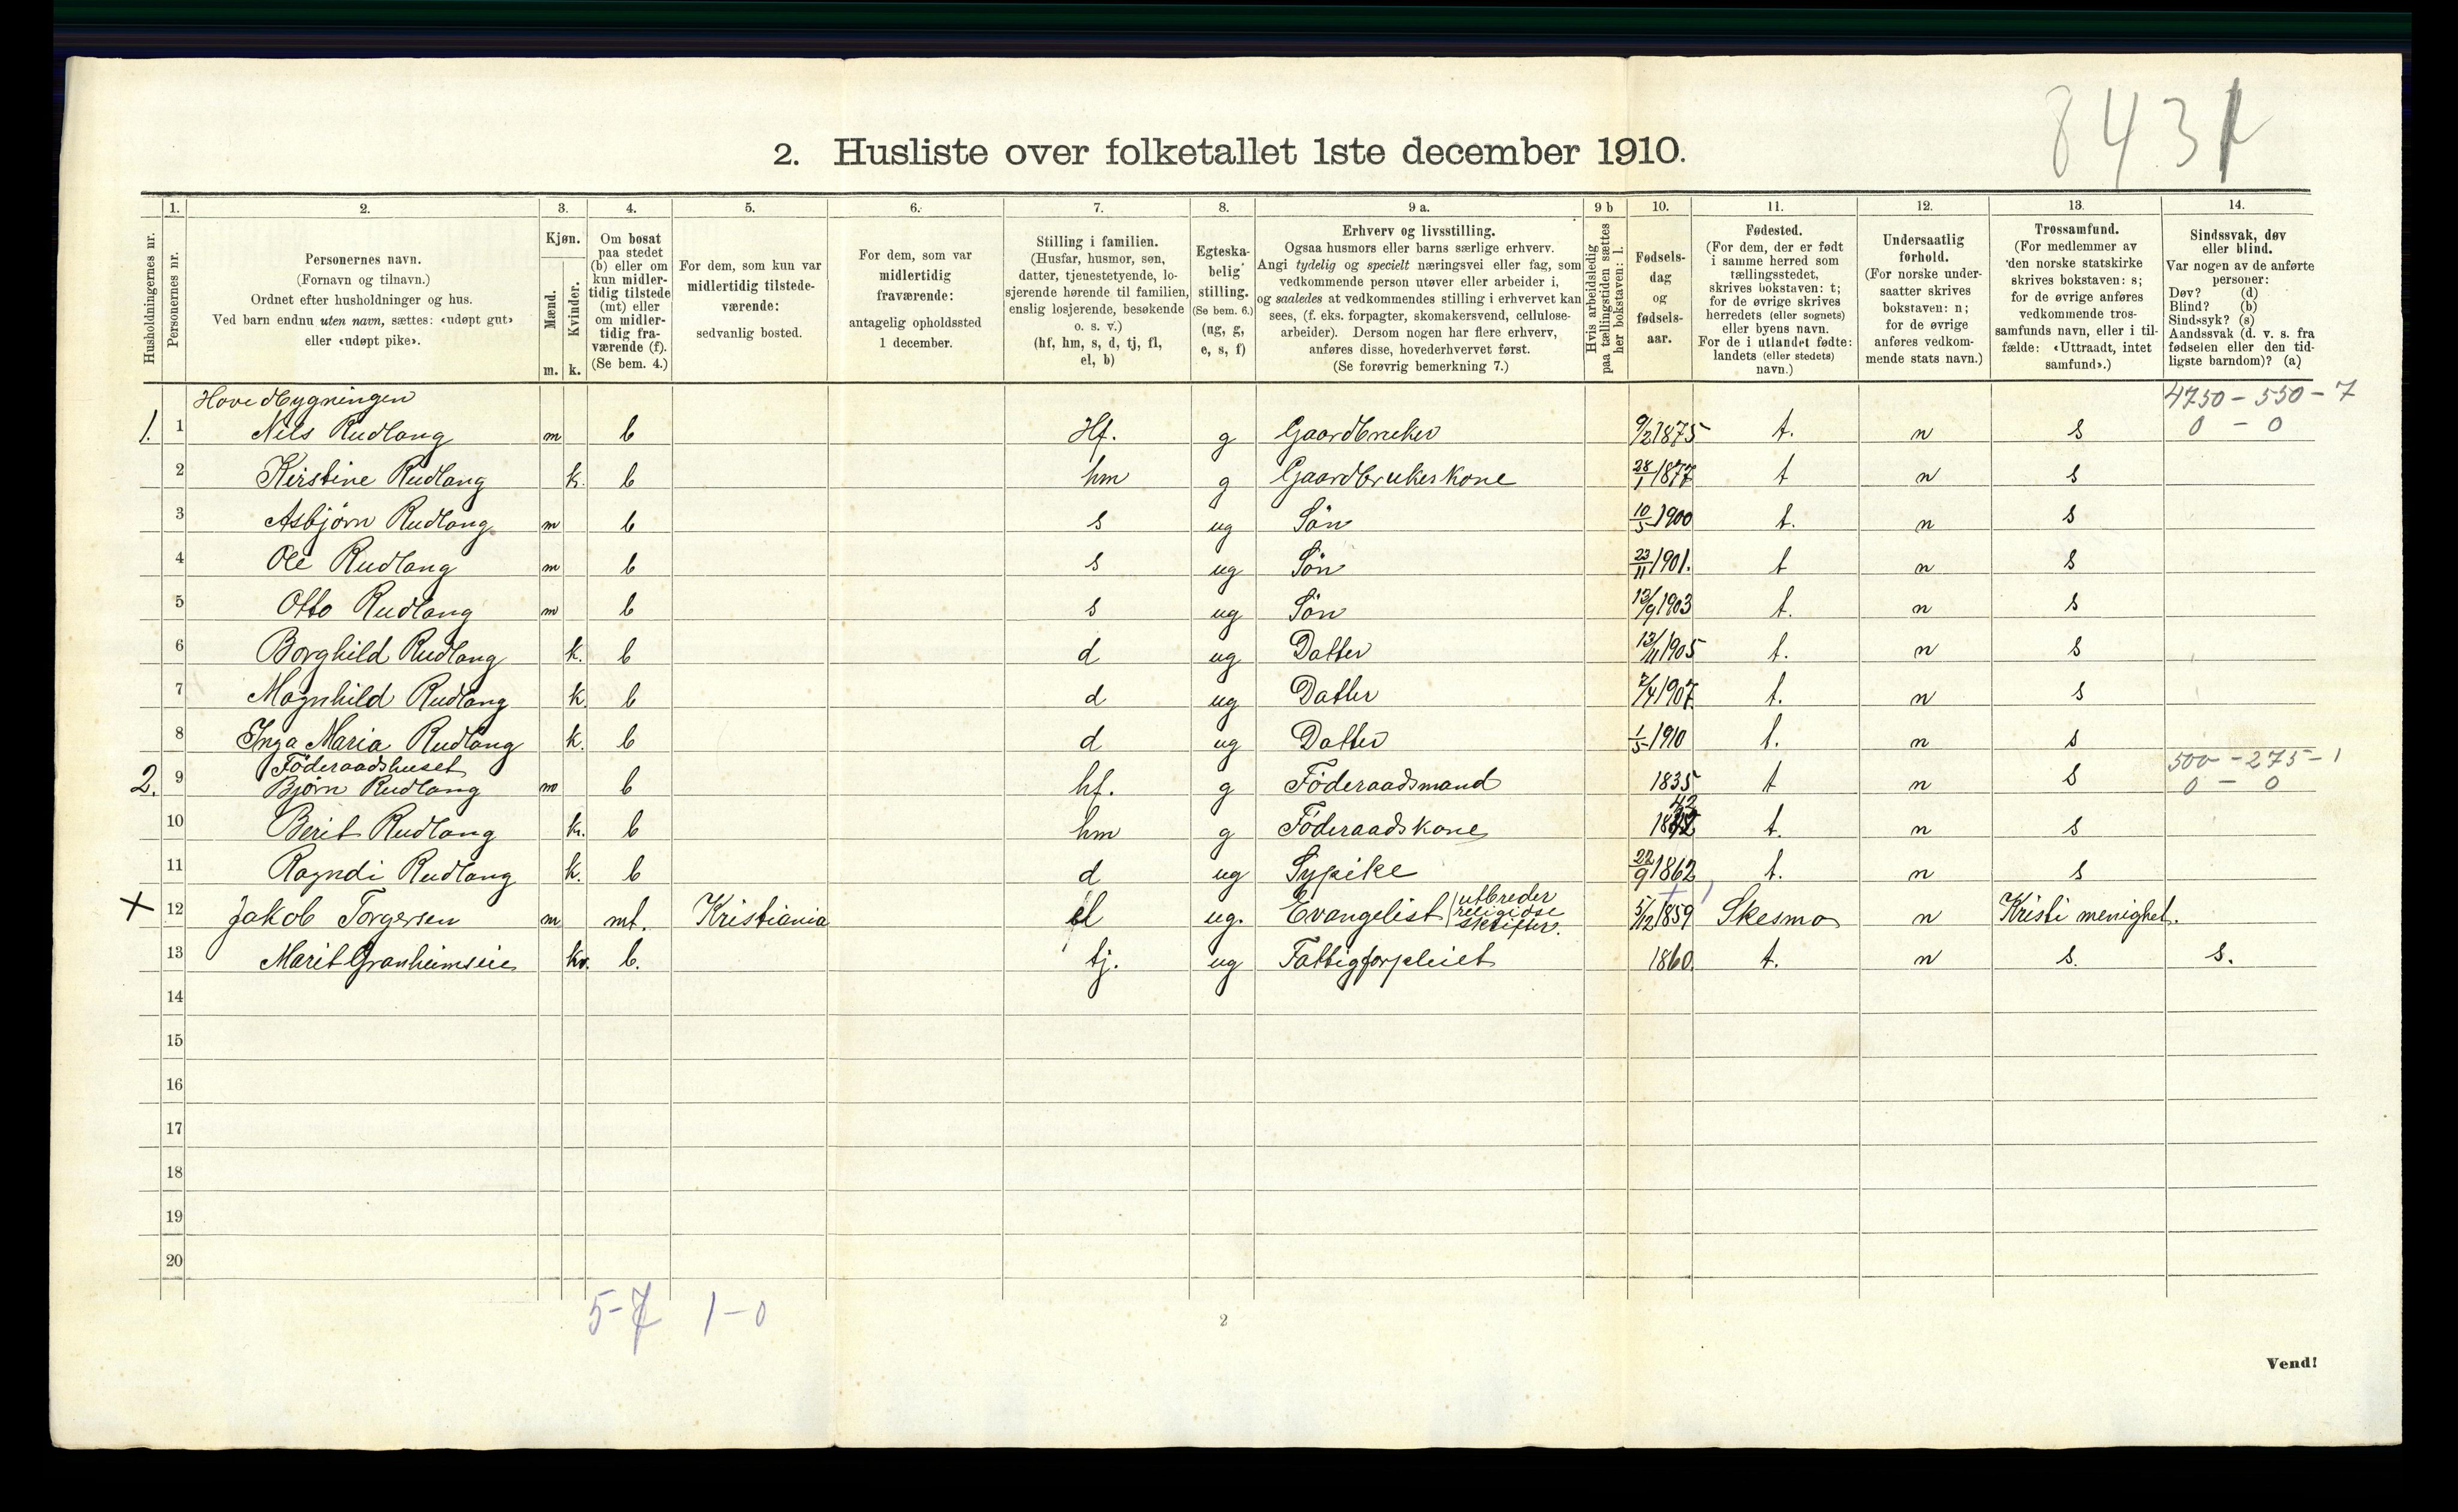 8431
2. Husliste over folketallet 1ste december 1910.
1. 2. 3. 4. 5. 6. 7. 8. 9 a. 9 b 10. 11. 12. 13. 14.
Husholdningernes nr.
Personernes nr.
Personernes navn.
(Fornavn og tilnavn.)
Ordnet efter husholdninger og hus.
Ved barn endnu uten navn, sættes: «udøpt gut»
eller «udøpt pike».
Kjøn.
Mænd.
Kvinder.
m. k.
Om bosat
paa stedet
(b) eller om
kun midler-
tidig tilstede
(mt) eller
om midler-
tidig fra-
værende (f).
(Se bem. 4.)
For dem, som kun var
midlertidig tilstede-
værende:
sedvanlig bosted.
For dem, som var
midlertidig
fraværende:
antagelig opholdssted
1 december.
Stilling i familien.
(Husfar, husmor, søn,
datter, tjenestetyende, lo-
sjerende hørende til familien,
enslig losjerende, besøkende
o. s. v.)
(hf, hm, s, d, tj, fl,
el, b)
Egteska-
belig
stilling.
(Se bem. 6.)
(ug, g,
e, s, f)
Erhverv og livsstilling.
Ogsaa husmors eller barns særlige erhverv.
Angi tydelig og specielt næringsvei eller fag, som
vedkommende person utøver eller arbeider i,
og saaledes at vedkommendes stilling i erhvervet kan
sees, (f. eks. forpagter, skomakersvend, cellulose-
arbeider). Dersom nogen har flere erhverv,
anføres disse, hovederhvervet først.
(Se forøvrig bemerkning 7.)
Hvis arbeidsledig
paa tællingstiden sættes
her bokstaven: l.
Fødsels-
dag
og
fødsels-
aar.
Fødested.
(For dem, der er født
i samme herred som
tællingsstedet,
skrives bokstaven: t;
for de øvrige skrives
herredets (eller sognets)
eller byens navn.
For de i utlandet fødte:
landets (eller stedets)
navn.)
Undersaatlig
forhold.
(For norske under-
saatter skrives
bokstaven: n;
for de øvrige
anføres vedkom-
mende stats navn.)
Trossamfund.
(For medlemmer av
den norske statskirke
skrives bokstaven: s;
for de øvrige anføres
vedkommende tros-
samfunds navn, eller i til-
fælde: «Uttraadt, intet
samfund».)
Sindssvak, døv
eller blind.
Var nogen av de anførte
personer:
Døv? (d)
Blind? (b)
Sindssyk? (s)
Aandssvak (d. v. s. fra
fødselen eller den tid-
ligste barndom)? (a)
Hovedbygningen 4750 - 550 - 7
1. 1 Nils Rudlang m b Hf. g Gaardbruker 9/2 1875 t. n s 0 - 0
2 Kirstine Rudlang k. b hm g Gaardbrukerskone 28/1 1877 t n s
3 Asbjørn Rudlang m b s ug Søn 10/5 1900 t. n s
4 Ole Rudlang m b s ug Søn 23/11 1901. t n s
5 Otto Rudlang m b s ug Søn 13/9 1903 t. n s
6 Borghild Rudlang k. b d ug Datter 13/11 1905 t. n s
7 Magnhild Rudlang k. b d ug Datter 7/4 1907. t. n s
8 Inga Maria Rudlang k. b d ug Datter 1/5 1910 t. n s
Föderaadshuset 500 - 275 - 1
2. 9 Bjørn Rudlang m b hf. g Föderaadsmand 1835 t n s 0 - 0
10 Berit Rudlang k. b hm g Föderaadskone 1842 t. n s
11 Ragndi Rudlang k. b d ug Sypike 22/9 1862 t. n s
X 12 Jakob Torgersen m mt. Kristiania el ug. Evangelist (utbreder religiøse skrifter. 5/12 1859 Skesmo n Kristi menighet.
13 Marit Granheimseie kv. b. tj. ug Fattigforpleiet 1860. t. n s. s.
14
15
16
17
18
19
20
5-7 1-0
2
Vend!